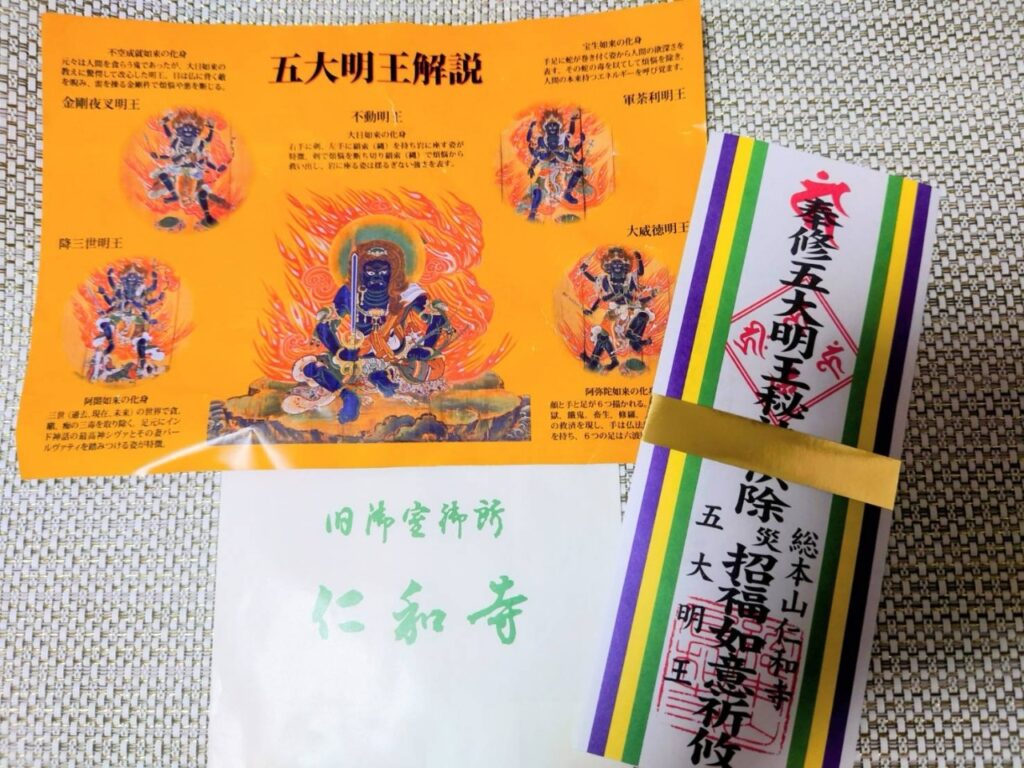 五大明王解説
不空成就如来の化身
元々は人間を食らう鬼であったが、大日如来の
教えに驚愕して改心した明王。目は仏に背く敵
を睨み、雷を操る金剛杵で煩悩や悪を断じる。
金剛夜叉明王
不動明王
大日如来の化身
右手に剣、左手に羂索（縄）を持ち岩に座す姿が
特徴。剣で煩悩を断ち切り羂索（縄）で煩悩から
救い出し、岩に座る姿は揺るぎない強さを表す。
宝生如来の化身
手足に蛇が巻き付く姿から人間の欲深さを
表す。その蛇の毒を以てして煩悩を除き、
人間の本来持つエネルギーを呼び覚ます。
軍荼利明王
降三世明王
阿閦如来の化身
三世（過去、現在、未来）の世界で貪、
瞋、痴の三毒を取り除く。足元にイン
ド神話の最高神シヴァとその妻パー
ルヴァティを踏みつける姿が特徴。
大威徳明王
阿弥陀如来の化身
顔と手と足が６つ描かれる。
獄、餓鬼、畜生、修羅、
の救済を現し、手は仏法
を持ち、６つの足は六波
旧御室御所
仁和寺
奉修五大明王秘
除災招福如意祈攸
総本山仁和寺
五大明王